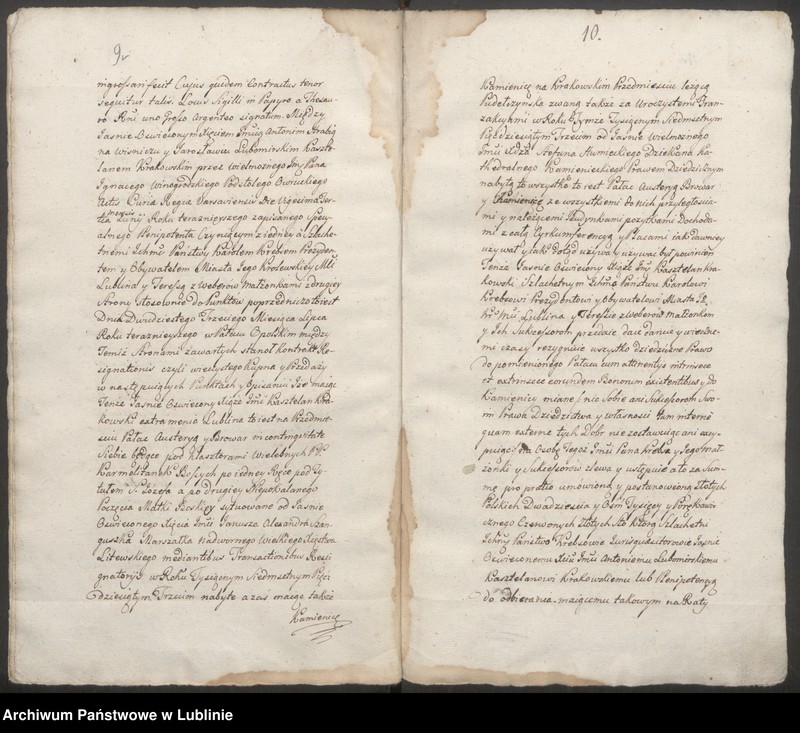 9v
ingrossari fecit Cujus quidem Contractus tenor
sequitur talis. Locus Sigilli in Papyro a Thesau-
ro Rni uno Grosso Argenteo signatum. Między
Jaśnie Oświeconym Xięciem Jmcią Antonim Hrabią
na Wiśniczu y Jarosławiu Lubomirskim Kaszte-
lanem Krakowskim przez Wielmożnego Jmć Pana
Ignacego Winogrodzkiego Podstolego Owruckiego
Actis Curiæ Regiæ Varsaviensis Die Vigesima Ter-
tia mensis Junij Roku teraznieyszego zapisanego Specy-
alnego Plenipotenta Czyniącym z iedney a Szlache-
tnemi Ichmć Państwy Karolem Krebsem Prezyden-
tem y Obywatelem Miasta Jego Krolewskiey Mści
Lublina y Teressą z Weberow Małżonkami z drugiey
Strony Stosownie do Punktow poprzedniczo to iest
Dnia Dwudziestego Trzeciego Miesiąca Lipca
Roku teraznieyszego w Pałacu Opolskim między
Temiż Stronami zawartych stanoł Kontrakt Re-
signationis czyli wieczystego Kupna y Przedaży
w następuiących Punktach y Opisaniu Iże maiąc
Tenże Jaśnie Oświecony Xiąże Jmć Kasztelan Kra-
kowski extra mœnia Lublina to iest na Przedmie-
ściu Pałac Austeryą y Browar in contiguitate
Siebie będące pod Klasztorami Wielebnych PP.
Karmelitanek Bosych po iedney Ręce pod Ty-
tułem S. Jozefa a po drugiey Niepokalanego
Poczęcia Matki Boskiey sytuowane od Jaśnie
Oświeconego Xięcia Jmci Janusza Alexandra San-
guszka Marszałka Nadwornego Wielkiego Xięstwa
Litewskiego mediantibus Transactionibus Resi
gnatoryis w Roku Tysiącznym Siedmsetnym Pięć
dziesiątym Trzecim nabyte a zaś maiąc także
Kamienicę
10.
Kamienicę na Krakowskim Przedmieściu leżącą
Pudełczynska zwaną także za Uroczystemi Tran-
zakcyami w Roku Tymże Tysiącznym Siedmsetnym
Pięćdziesiątym Trzecim od Jaśnie Wielmożnego
Jmci Xdza Stefana Humieckiego Dziekana Ka-
thedralnego Kamienieckiego Prawem Dziedzicznym
nabytą to wszystko to iest Pałac Austeryą Browar
y Kamienicę ze wszystkiemi do nich przyległościa-
mi y należącemi Budynkami pozytkami Dochoda-
mi z całą Cyrkumferencyą y Placami iak dawniey
używał y iak dotąd używa y używać by powinien
Tenże Jaśnie Oświecony Xiąże Jmć Kasztelan Kra-
kowski Szlachetnym Ichmć Państwu Karolowi
Krebsowi Prezydentowi y Obywatelowi Miasta J.
K. Mci Lublina y Teressie z Weberow Małżonkom
y Ich Sukcessorom przedaie daie daruie y wieczne-
mi czasy rezygnuie wszystko dziedziczne Prawo
do pomienionego Pałacu cum attinentijs intrinsece
et extrinsece eorundem Bonorum existentibus y do
Kamienicy miane / nic Sobie ani Sukcessorom Swo-
im Prawa Dziedzictwa y własności tam interne
quam externe tych Dobr nie zostawuiąc ani excy-
puiąc / na Osobę Tegoż Jmci Pana Krebsa y Jego Mał
żonki y Sukcessorow zlewa y ustępuie a to za Sum-
mę pro pretio umowioną y postanowioną Złotych
Polskich Dwadzieścia y Ośm Tysięcy y Porękawi
cznego Czerwonych Złotych Sto którą Szlachetni
Ichmć Państwo Krebsowie Jurisquæsitorowie Jaśnie
Oświeconemu Xciu Jmci Antoniemu Lubomirskiemu
Kasztelanowi Krakowskiemu lub Plenipotencyą
do odbierania maiącemu takowym na Raty
Archiwum Państwowe w Lublinie